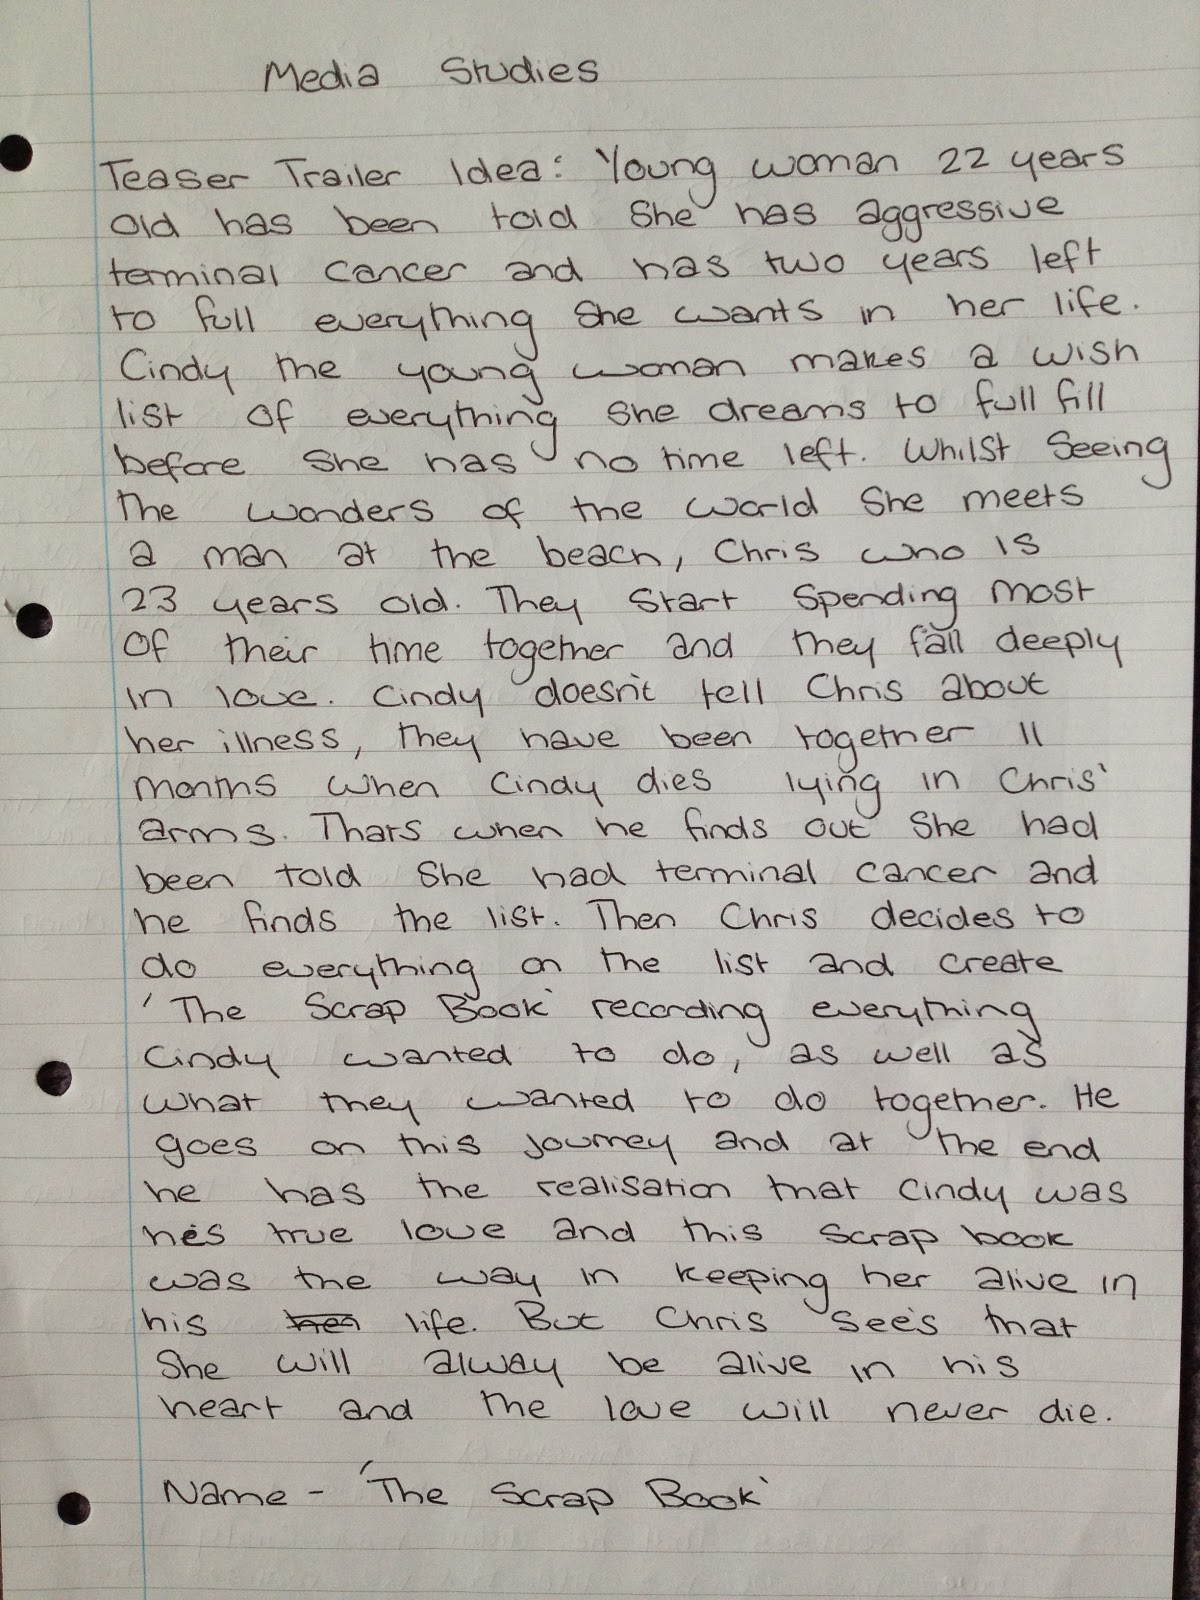 Media Studies
Teaser Trailer Idea: Young woman 22 years
old has been told she has aggressive
terminal cancer and has two years left
to full everything she wants in her life.
Cindy the young woman makes a wish
list of everything she dreams to full fill
before she has no time left. Whilst seeing
the wonders of the world she meets
a man at the beach, Chris who is
23 years old. They start spending most
of their time together and they fall deeply
in love. Cindy doesn't tell Chris about
her illness, they have been together 11
months when Cindy dies lying in Chris'
arms. Thats when he finds out she had
been told she had terminal cancer and
he finds the list. Then Chris decides to
do everything on the list and create
'The Scrap Book' recording everything
Cindy wanted to do, as well as
what they wanted to do together. He
goes on this journey and at the end
he has the realisation that Cindy was
he's true love and this scrap book
was the way in keeping her alive in
his her life. But Chris see's that
she will alway be alive in his
heart and the love will never die.
Name - 'The Scrap Book'